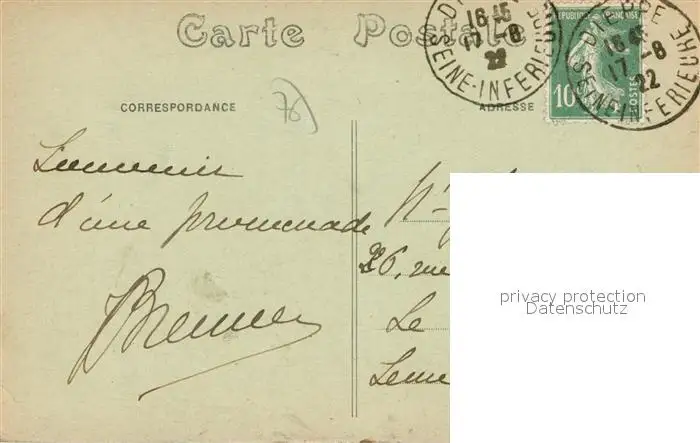 Carte Postale
CORRESPONDANCE
ADRESSE
REPUBLIQUE FRANÇAISE
10
POSTES
DIEPPE
16 45
17 - 8
22
SEINE-INFERIEURE
DIEPPE
16 45
17 - 8
22
SEINE-INFERIEURE
76
Souvenir
d'une promenade
26, rue
Le
privacy protection
Datenschutz